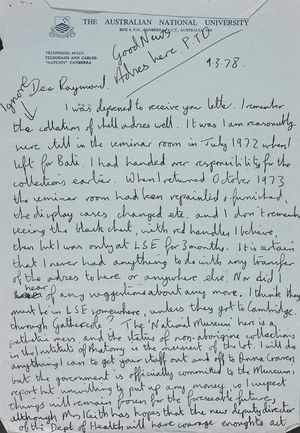 THE AUSTRALIAN NATIONAL UNIVERSITY
BOX 4, P.O., CANBERRA, A.C.T., AUSTRALIA, 2600
TELEPHONE:
TELEGRAMS AND CABLES:
"NATUNIV" CANBERRA
Good News
Adzes here P.T.O
9.3.78.
Ignore
Dear Raymond,
I was depressed to receive your letter. I remember
the collection of shell adzes well. It was I am reasonably
sure still in the seminar room in July 1972 when I
left for Bali. I had handed over responsibility for the
collections earlier. When I returned October 1973
the seminar room had been repainted & furnished,
the display cases changed etc. and I don't remember
seeing the black chest, with red handles I believe,
then but I was only at LSE for 3 months. It is certain
that I never had anything to do with any transfer
of the adzes to here or anywhere else. Nor did I
hear of any suggestions about any move. I think they
must be in LSE somewhere, unless they got to Cambridge
through Gathercole. The 'National Museum' here is a
pathetic mess, and the status of non-aboriginal collections
in the Institute of Anatomy is the murkiest of the lot. I will do
anything I can to get your stuff out and off to Anna Craven,
but the government is officially committed to the Museum,
report but unwilling to put up any money, so I suspect
things will remain frozen for the foreseeable future,
although Mrs Keith has hopes that the new deputy director
of the Dept of Health will have courage enough to act